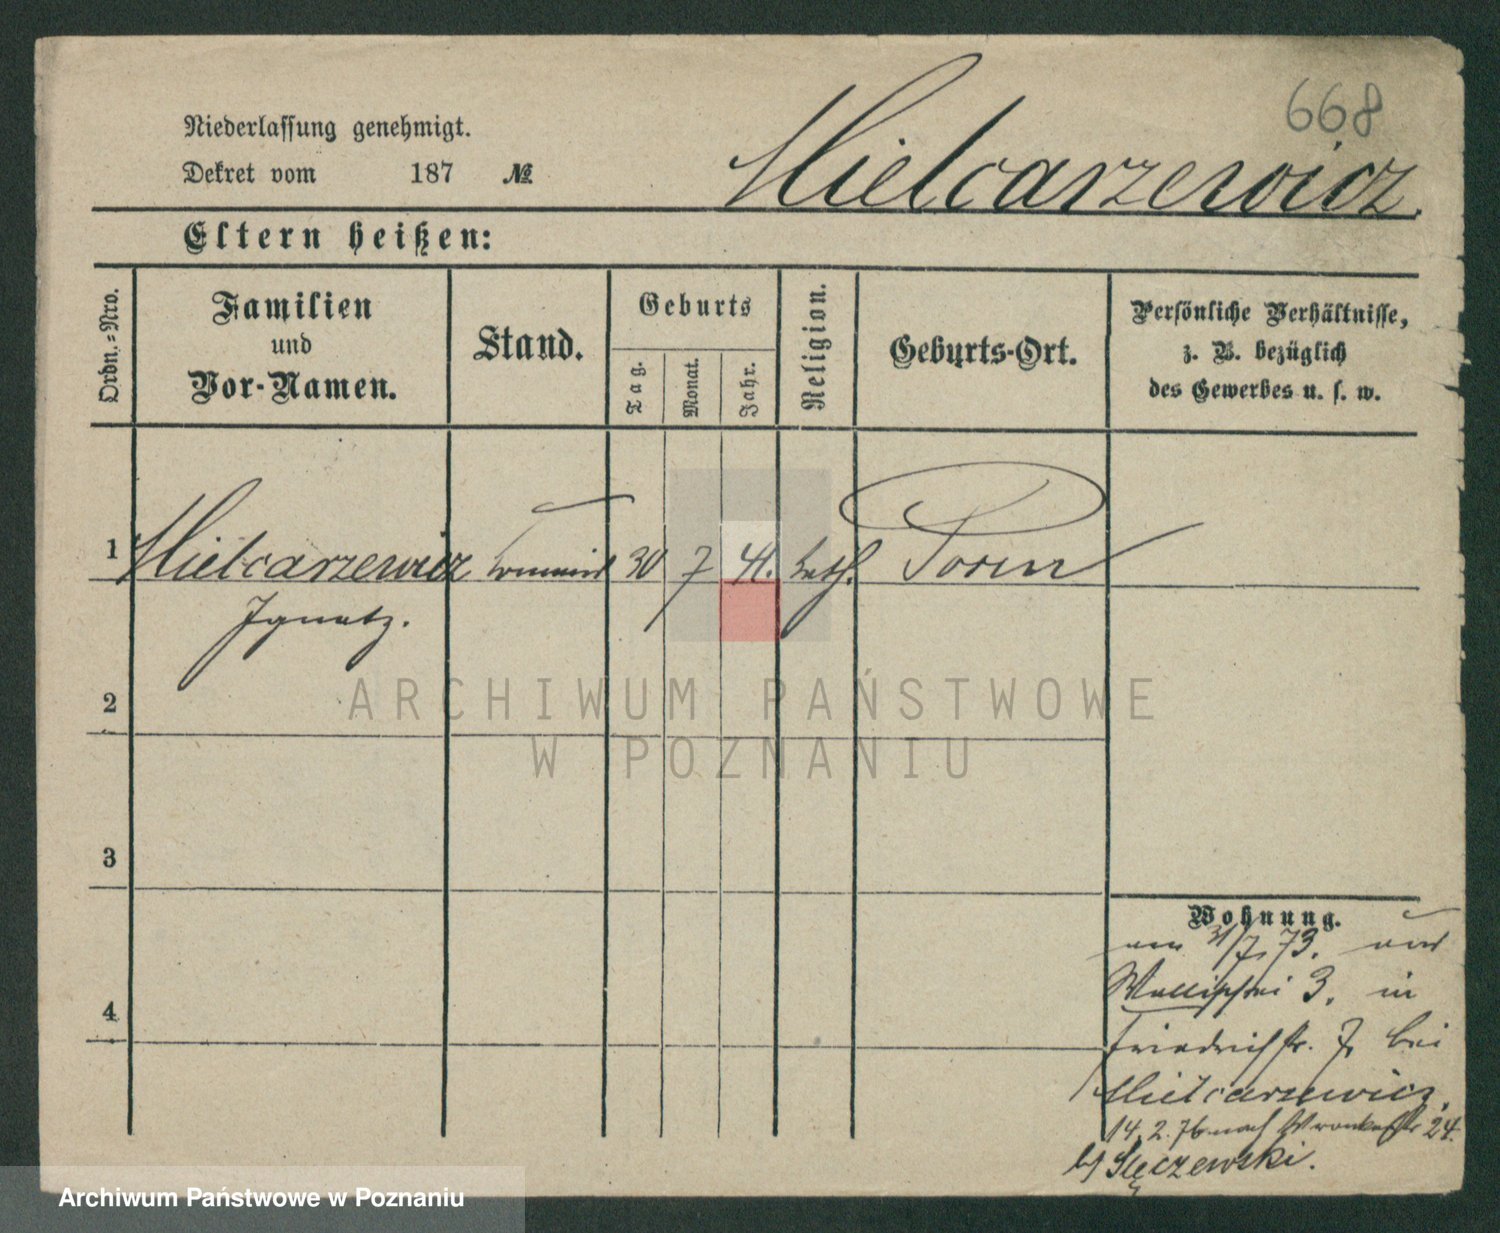 668
Niederlassung genehmigt.
Dekret vom 187 №
Mielcarzewicz.
Eltern heißen:
Ordn.-Nro.
Familien
und
Vor-Namen.
Stand.
Geburts
Tag.
Monat.
Jahr.
Religion.
Geburts-Ort.
Persönliche Verhältnisse,
z. B. bezüglich
des Gewerbes u. s. w.
1 Mielcarzewicz 30 7 41. kath. Posen
Ignatz.
2
3
4
Wohnung.
am 31/7. 73. aus
Wallischei 3. in
Friedrichstr. 7 bei
Mielcarzewicz.
14. 2. 76 nach Wronkerstr 24.
b/ Slęczewski.
ARCHIWUM PAŃSTWOWE
W POZNANIU
Archiwum Państwowe w Poznaniu